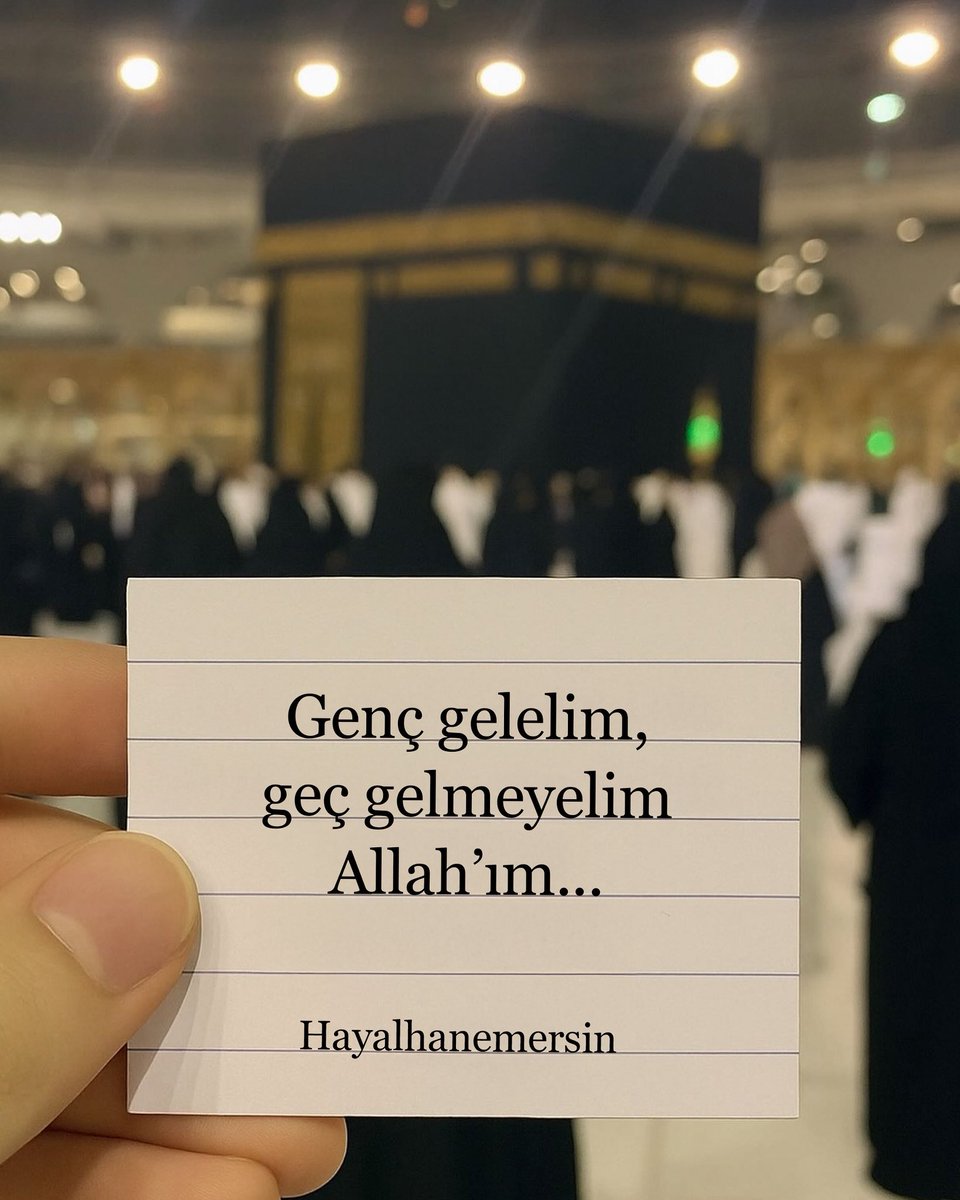 Genç gelelim,
geç gelmeyelim
Allah’ım...
Hayalhanemersin